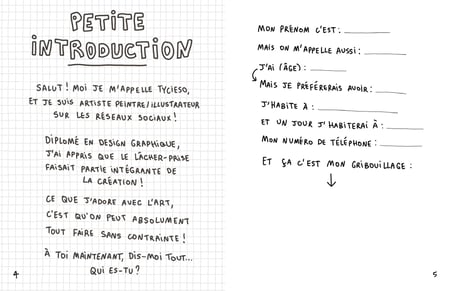 PETITE
INTRODUCTION
SALUT ! MOI JE M'APPELLE TYCIESO,
ET JE SUIS ARTISTE PEINTRE/ILLUSTRATEUR
SUR LES RÉSEAUX SOCIAUX !
DIPLOMÉ EN DESIGN GRAPHIQUE,
J'AI APPRIS QUE LE LÂCHER-PRISE
FAISAIT PARTIE INTÉGRANTE DE
LA CRÉATION !
CE QUE J'ADORE AVEC L'ART,
C'EST QU'ON PEUT ABSOLUMENT
TOUT FAIRE SANS CONTRAINTE !
À TOI MAINTENANT, DIS-MOI TOUT...
QUI ES-TU ?
4
MON PRÉNOM C'EST :
MAIS ON M'APPELLE AUSSI :
J'AI (ÂGE) :
MAIS JE PRÉFÉRERAIS AVOIR :
J'HABITE À :
ET UN JOUR J'HABITERAI À :
MON NUMÉRO DE TÉLÉPHONE :
ET ÇA C'EST MON GRIBOUILLAGE :
5